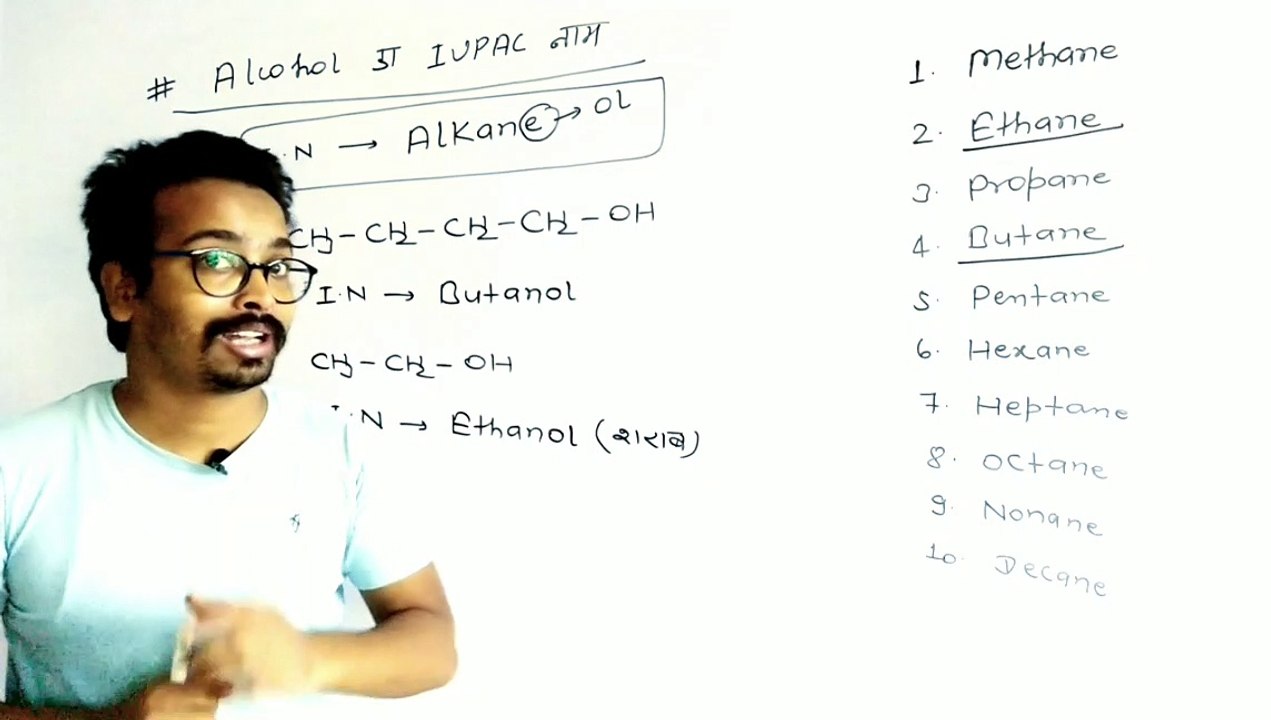 # Alcohol का IUPAC नाम
I.N → Alkane → ol
CH3 - CH2 - CH2 - CH2 - OH
I.N → Butanol
CH3 - CH2 - OH
I.N → Ethanol (शराब)
1. Methane
2. Ethane
3. Propane
4. Butane
5. Pentane
6. Hexane
7. Heptane
8. Octane
9. Nonane
10. Decane